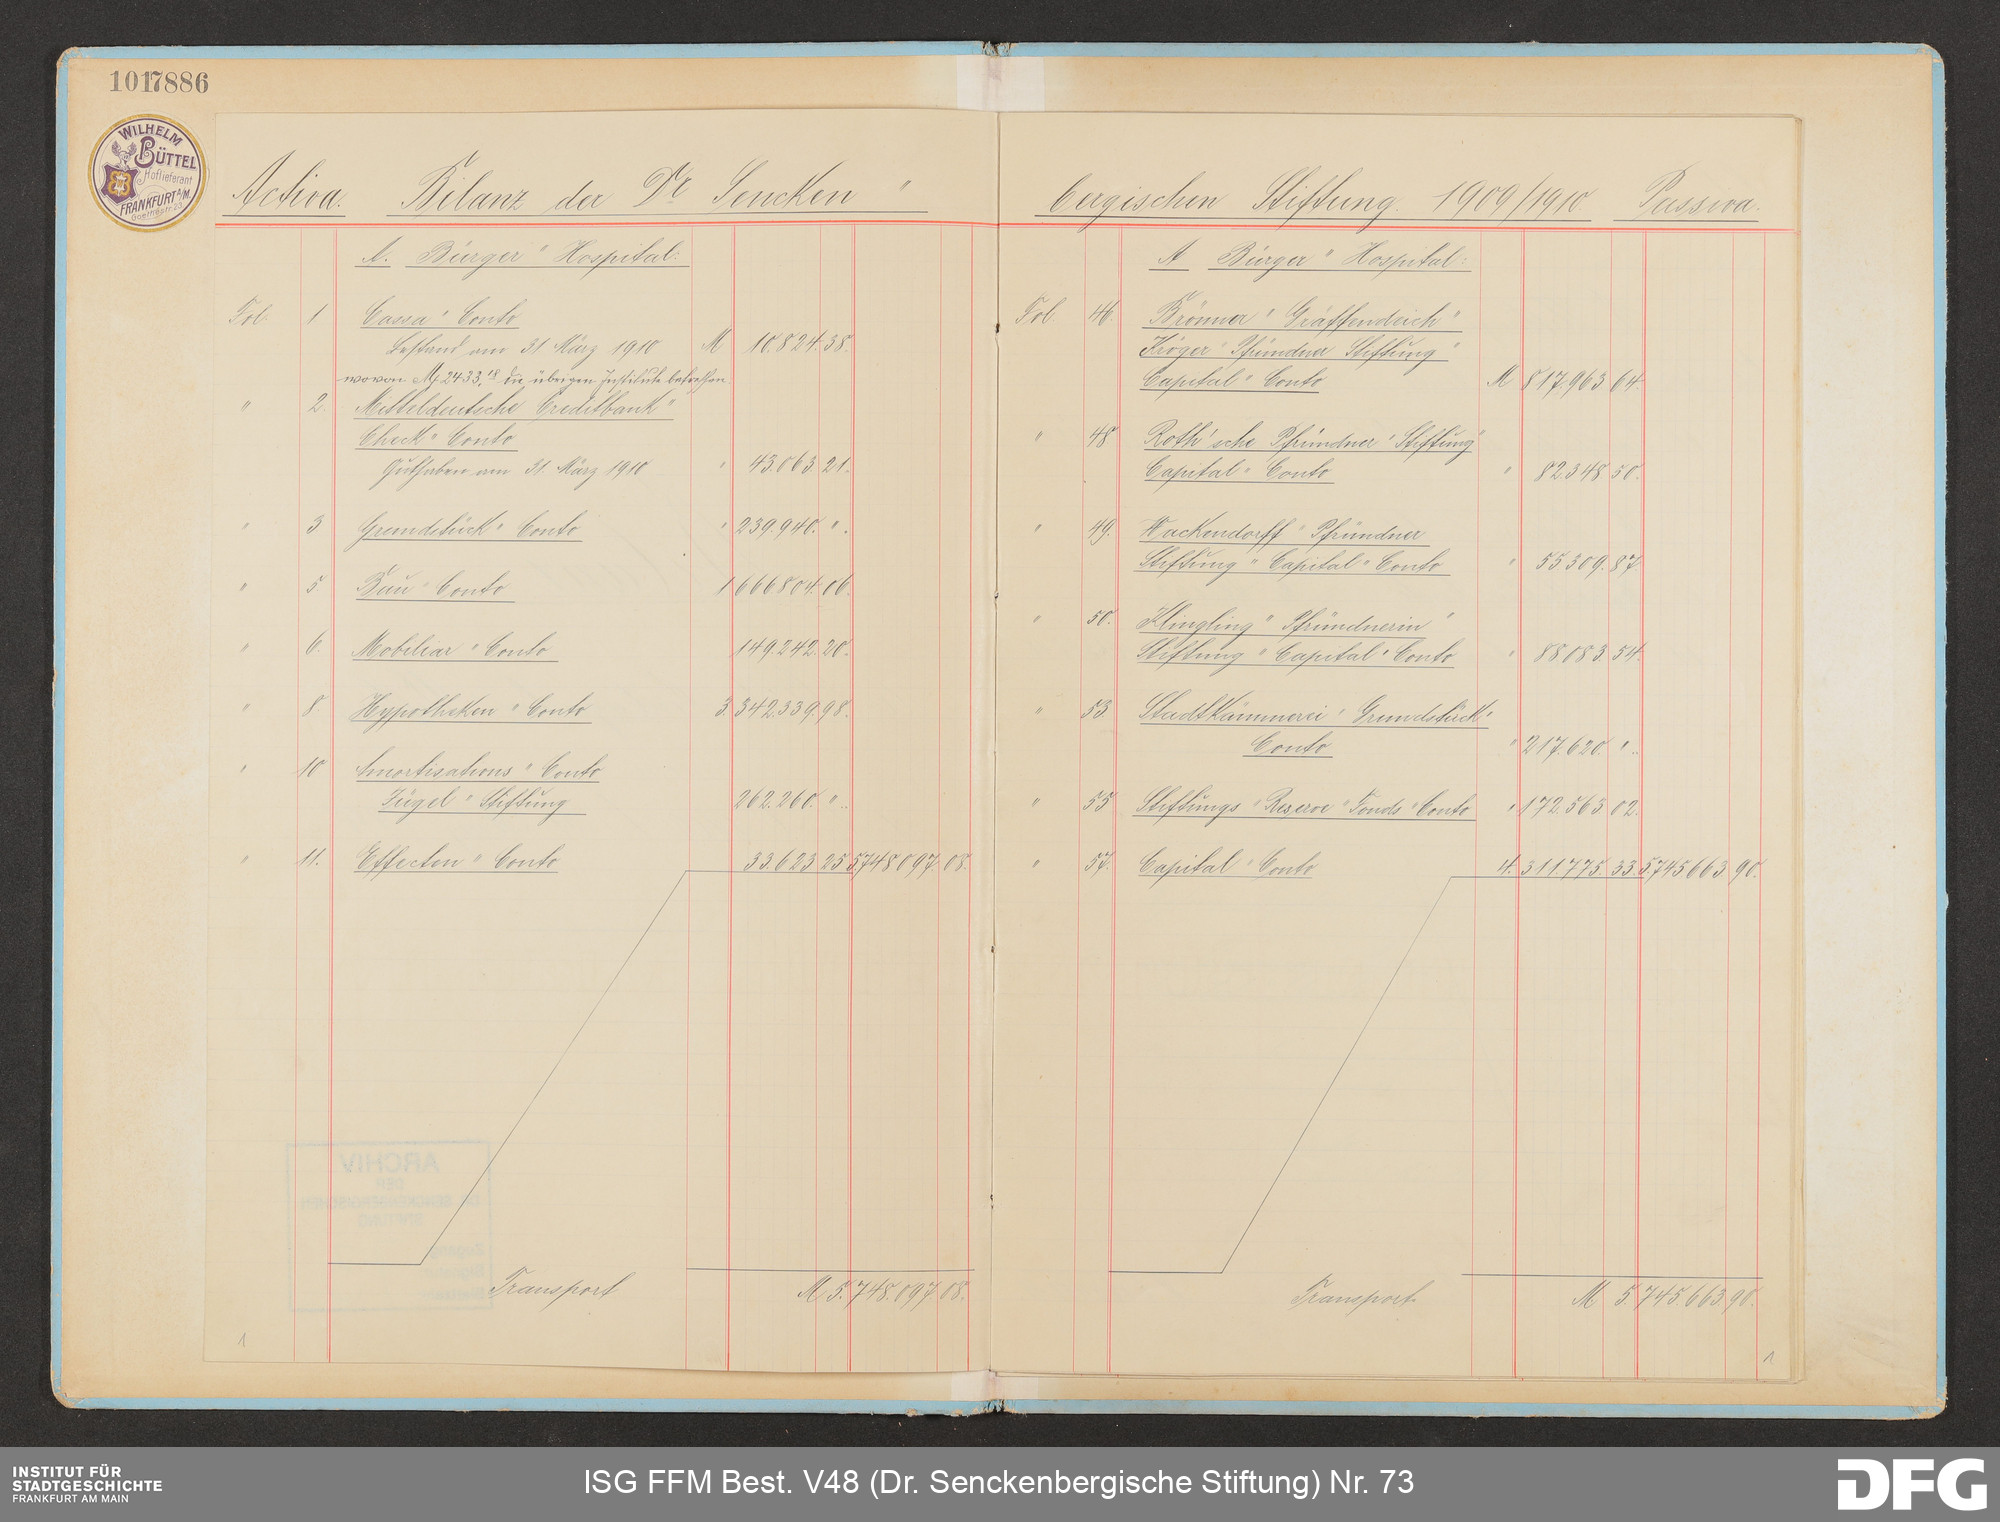 1017886
WILHELM
BÜTTEL
Hoflieferant
FRANKFURT A/M.
Goethestr. 23
Activa. Bilanz der Dr Sencken "
A. Bürger " Hospital:
Fol. 1 Cassa " Conto
Bestand am 31 März 1910 M 10.824.38.
wovon M 2433,18 die übrigen Institute betreffen.
" 2. Mitteldeutsche Creditbank "
Check " Conto
Guthaben am 31. März 1910 " 43.063 21.
" 3 Grundstück " Conto " 239.940. " .
" 5 Bau " Conto 1 666 804.06.
" 6. Mobiliar " Conto 149.242.20.
" 8 Hypotheken " Conto 3.342.339.98.
" 10 Amortisations " Conto
Jügel " Stiftung 262.260. " .
" 11. Effecten " Conto 33.623 25 5.748.097.08.
Transport M 5.748.097 08.
1
bergischen Stiftung. 1909/1910 Passiva.
A Bürger " Hospital:
Fol. 46. Brönner " Gräffendeich "
Kröger " Pfründner Stiftung "
Capital " Conto M 817.963 64.
" 48 Roth'sche Pfründner " Stiftung "
Capital " Conto " 82 348 50.
" 49. Wackendorff " Pfründner
Stiftung " Capital " Conto " 55 309.87
" 50. Klingling " Pfründnerin "
Stiftung " Capital " Conto " 88 083.54.
" 53 Stadtkämmerei " Grundstück "
Conto " 217.620. " .
" 55 Stiftungs " Reserve " Fonds " Conto " 172.563.02.
" 57. Capital " Conto 4.311.775.33. 5.745 663 90.
Transport M 5.745.663.90.
1
ARCHIV
DER
DR. SENCKENBERGISCHEN
STIFTUNG
INSTITUT FÜR
STADTGESCHICHTE
FRANKFURT AM MAIN
ISG FFM Best. V48 (Dr. Senckenbergische Stiftung) Nr. 73
DFG